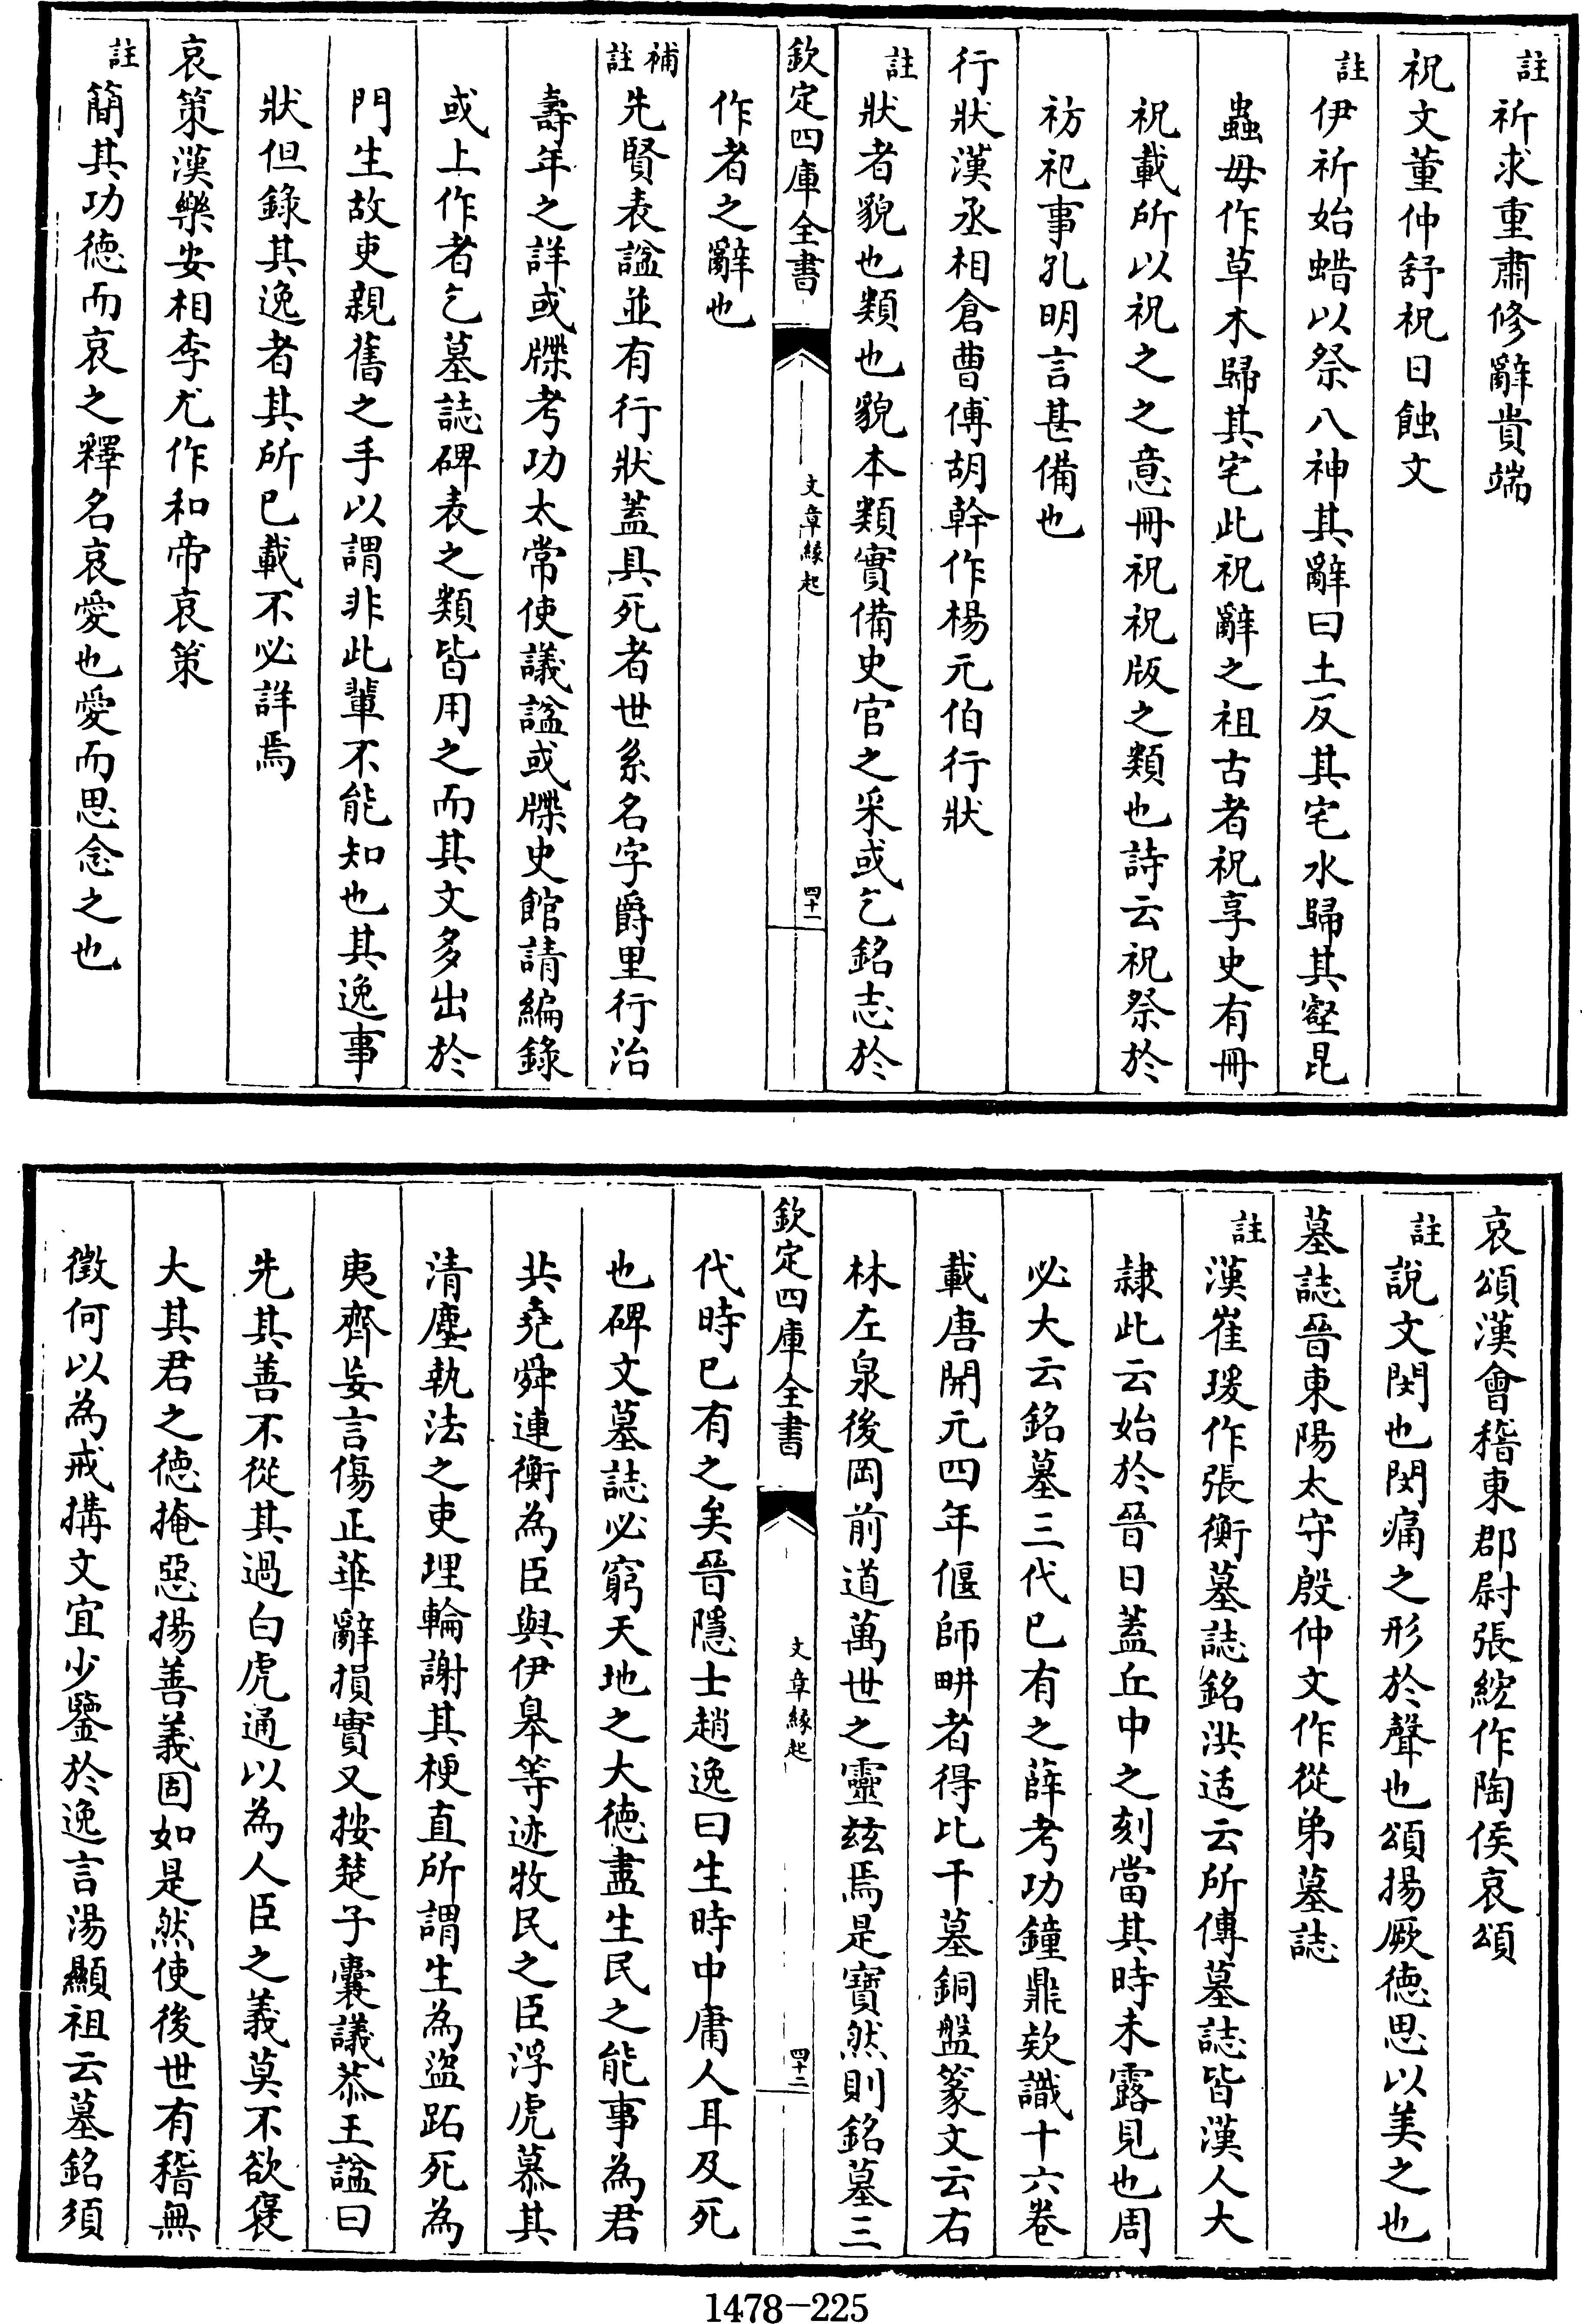 註祈求重肅修辭貴端
祝文董仲舒祝日蝕文
註伊祈始蜡以祭八神其辭曰土反其宅水歸其壑昆
蟲毋作草木歸其宅此祝辭之祖古者祝享史有冊
祝載所以祝之之意冊祝祝版之類也詩云祝祭於
祊祀事孔明言甚備也
行狀漢丞相倉曹傅胡幹作楊元伯行狀
註狀者貌也類也貌本類實備史官之采或乞銘志於
欽定四庫全書 文章緣起 四十一
作者之辭也
補註先賢表諡並有行狀蓋具死者世系名字爵里行治
壽年之詳或牒考功太常使議諡或牒史館請編錄
或上作者乞墓誌碑表之類皆用之而其文多出於
門生故吏親舊之手以謂非此輩不能知也其逸事
狀但錄其逸者其所已載不必詳焉
哀策漢樂安相李尤作和帝哀策
註簡其功德而哀之釋名哀愛也愛而思念之也
哀頌漢會稽東郡尉張紘作陶侯哀頌
註說文閔也閔痛之形於聲也頌揚厥德思以美之也
墓誌晉東陽太守殷仲文作從弟墓誌
註漢崔瑗作張衡墓誌銘洪适云所傳墓誌皆漢人大
隷此云始於晉日蓋丘中之刻當其時未露見也周
必大云銘墓三代已有之薛考功鐘鼎欵識十六卷
載唐開元四年偃師畊者得比干墓銅盤篆文云右
林左泉後岡前道萬世之靈兹焉是寶然則銘墓三
欽定四庫全書 文章緣起 四十二
代時已有之矣晉隱士趙逸曰生時中庸人耳及死
也碑文墓誌必窮天地之大德盡生民之能事為君
共堯舜連衡為臣與伊皋等迹牧民之臣浮虎慕其
清塵執法之吏埋輪謝其梗直所謂生為盜跖死為
夷齊妄言傷正華辭損實又按楚子囊議恭王諡曰
先其善不從其過白虎通以為人臣之義莫不欲褒
大其君之德掩惡揚善義固如是然使後世有稽無
徵何以為戒搆文宜少鑒於逸言湯顯祖云墓銘須
1478-225